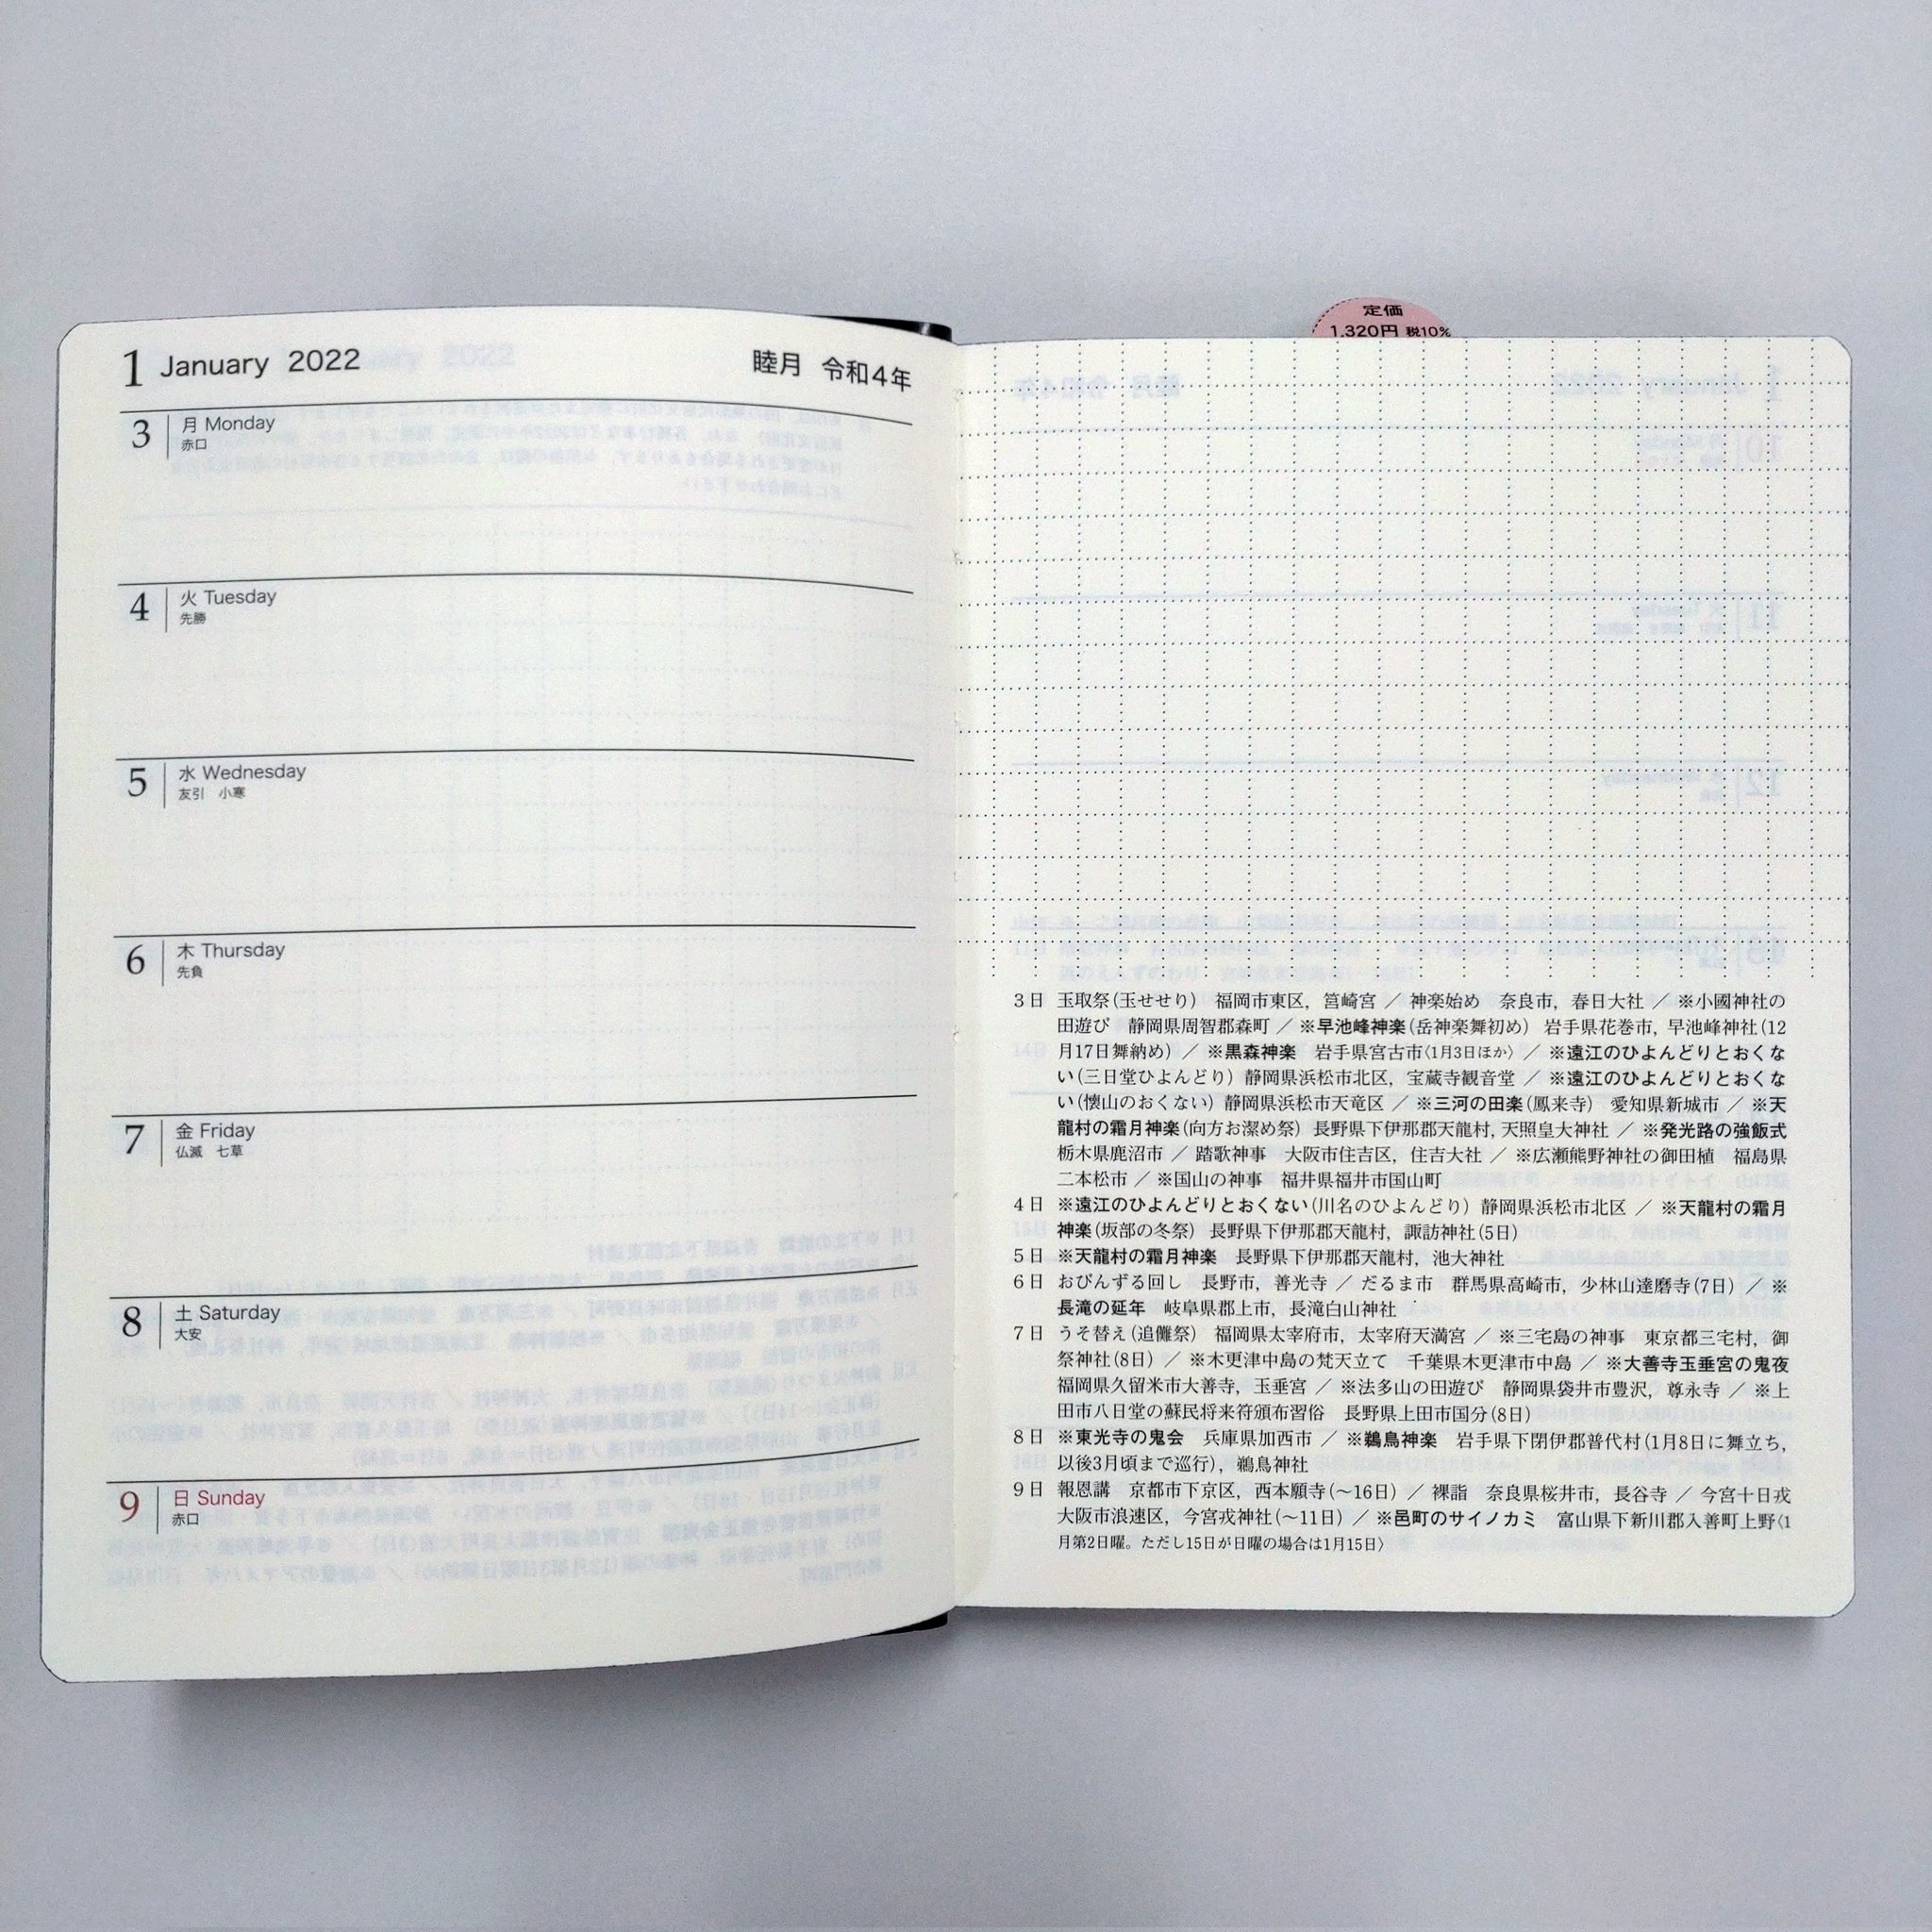 1 January 2022 睦月 令和4年
3 月 Monday
赤口
4 火 Tuesday
先勝
5 水 Wednesday
友引 小寒
6 木 Thursday
先負
7 金 Friday
仏滅 七草
8 土 Saturday
大安
9 日 Sunday
赤口
定価
1,320円 税10%
3日 玉取祭(玉せせり) 福岡市東区, 筥崎宮 ／ 神楽始め 奈良市, 春日大社 ／ ※小國神社の
田遊び 静岡県周智郡森町 ／ ※早池峰神楽(岳神楽舞初め) 岩手県花巻市, 早池峰神社(12
月17日舞納め) ／ ※黒森神楽 岩手県宮古市〈1月3日ほか〉 ／ ※遠江のひよんどりとおくな
い(三日堂ひよんどり) 静岡県浜松市北区, 宝蔵寺観音堂 ／ ※遠江のひよんどりとおくな
い(懐山のおくない) 静岡県浜松市天竜区 ／ ※三河の田楽(鳳来寺) 愛知県新城市 ／ ※天
龍村の霜月神楽(向方お潔め祭) 長野県下伊那郡天龍村, 天照皇大神社 ／ ※発光路の強飯式
栃木県鹿沼市 ／ 踏歌神事 大阪市住吉区, 住吉大社 ／ ※広瀬熊野神社の御田植 福島県
二本松市 ／ ※国山の神事 福井県福井市国山町
4日 ※遠江のひよんどりとおくない(川名のひよんどり) 静岡県浜松市北区 ／ ※天龍村の霜月
神楽(坂部の冬祭) 長野県下伊那郡天龍村, 諏訪神社(5日)
5日 ※天龍村の霜月神楽 長野県下伊那郡天龍村, 池大神社
6日 おびんずる回し 長野市, 善光寺 ／ だるま市 群馬県高崎市, 少林山達磨寺(7日) ／ ※
長滝の延年 岐阜県郡上市, 長滝白山神社
7日 うそ替え(追儺祭) 福岡県太宰府市, 太宰府天満宮 ／ ※三宅島の神事 東京都三宅村, 御
祭神社(8日) ／ ※木更津中島の梵天立て 千葉県木更津市中島 ／ ※大善寺玉垂宮の鬼夜
福岡県久留米市大善寺, 玉垂宮 ／ ※法多山の田遊び 静岡県袋井市豊沢, 尊永寺 ／ ※上
田市八日堂の蘇民将来符頒布習俗 長野県上田市国分(8日)
8日 ※東光寺の鬼会 兵庫県加西市 ／ ※鵜鳥神楽 岩手県下閉伊郡普代村(1月8日に舞立ち,
以後3月頃まで巡行), 鵜鳥神社
9日 報恩講 京都市下京区, 西本願寺(〜16日) ／ 裸詣 奈良県桜井市, 長谷寺 ／ 今宮十日戎
大阪市浪速区, 今宮戎神社(〜11日) ／ ※邑町のサイノカミ 富山県下新川郡入善町上野〈1
月第2日曜。ただし15日が日曜の場合は1月15日〉